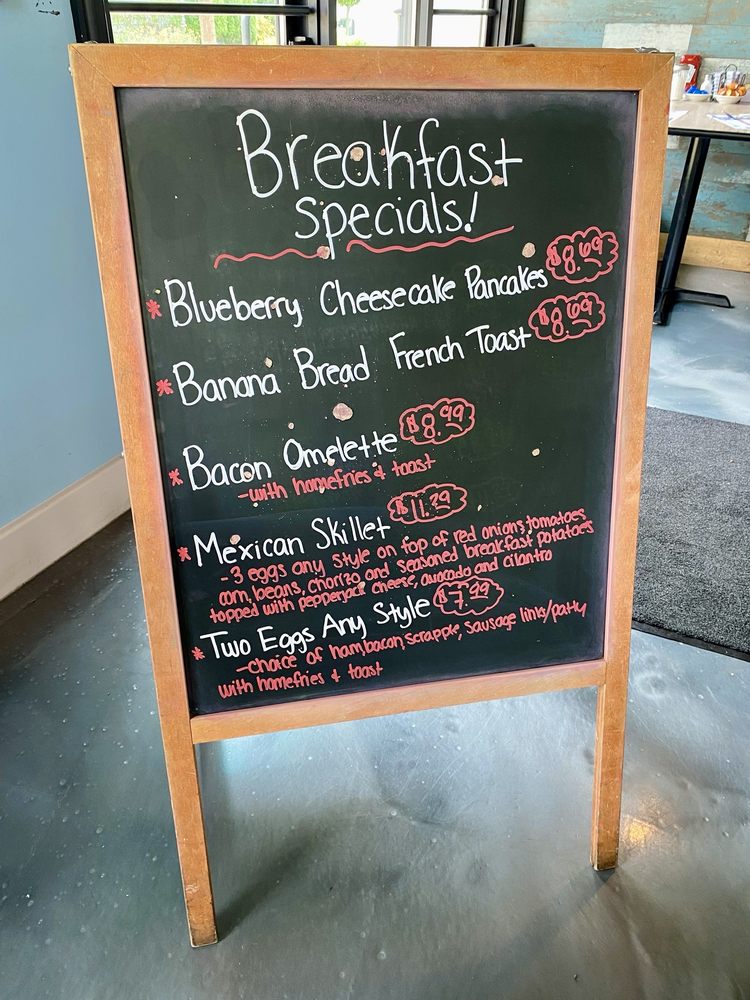 Breakfast
Specials!
* Blueberry Cheesecake Pancakes $8.69
* Banana Bread French Toast $8.69
* Bacon Omelette $8.99
-with homefries & toast
* Mexican Skillet $11.29
-3 eggs any style on top of red onions, tomatoes
corn, beans, chorizo and seasoned breakfast potatoes
topped with pepperjack cheese, avocado and cilantro
* Two Eggs Any Style $7.99
-choice of ham, bacon, scrapple, sausage links/patty
with homefries & toast